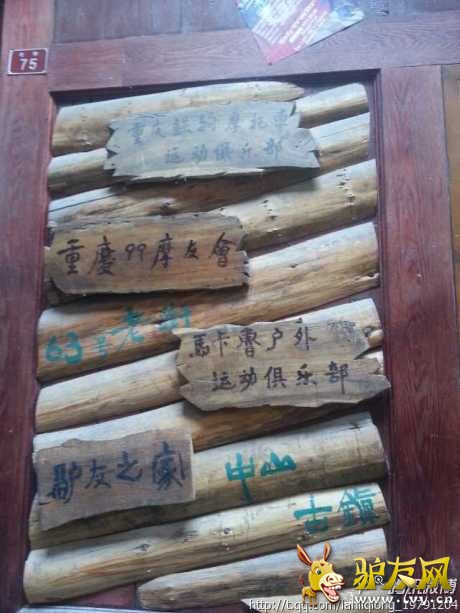 75
重庆铁骑摩托車
运动俱乐部
重慶99摩友會
63号老街
馬卡魯户外
运动俱乐部
驴友之家
中山
古鎮
驴友网
www.tvy.cn